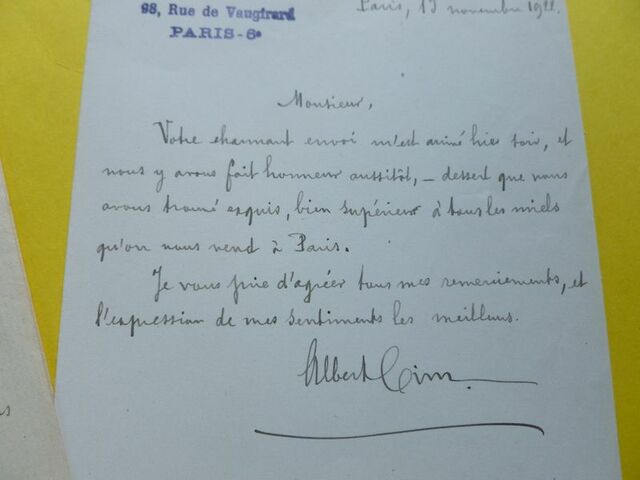 98, Rue de Vaugirard
PARIS-6e
Paris, 13 novembre 1922.
Monsieur,
Votre charmant envoi m'est arrivé hier soir, et
nous y avons fait honneur aussitôt, — dessert que nous
avons trouvé exquis, bien supérieur à tous les miels
qu'on nous vend à Paris.
Je vous prie d'agréer tous mes remerciements, et
l'expression de mes sentiments les meilleurs.
Albert Cim.